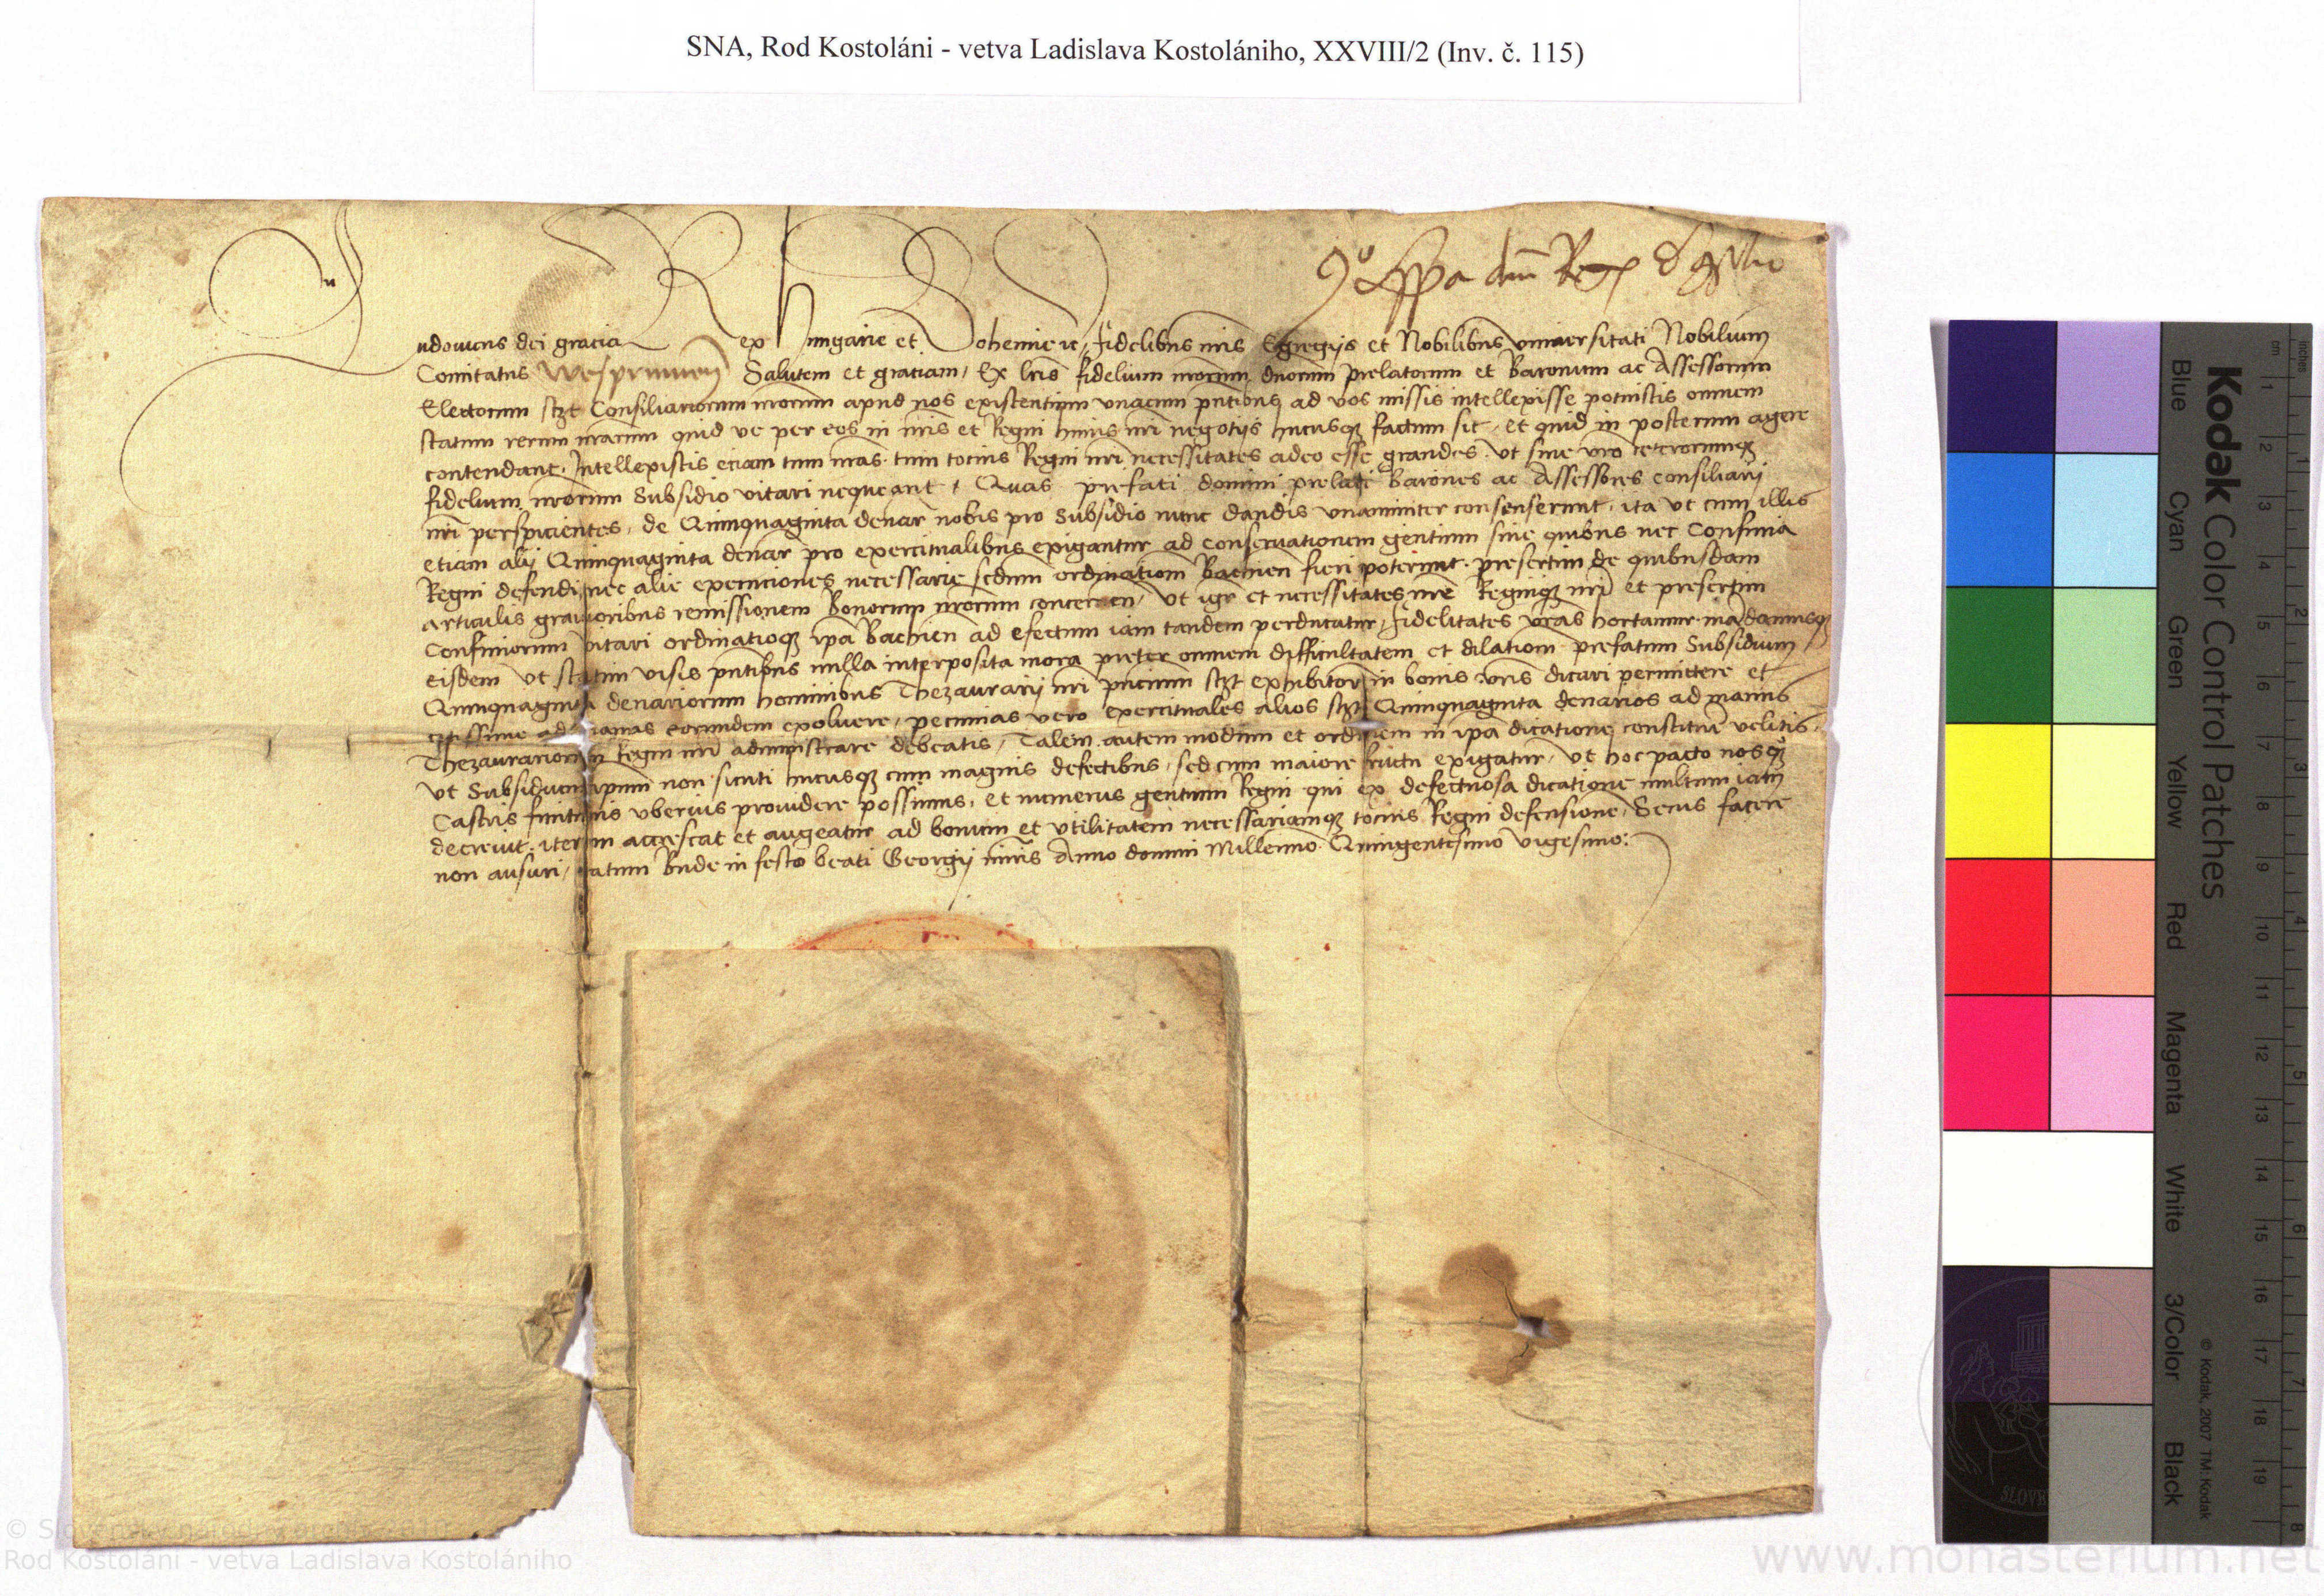 SNA, Rod Kostoláni - vetva Ladislava Kostolániho, XXVIII/2 (Inv. č. 115)
udouicus dei gracia Rex Hungarie et Bohemie ꝛc, fidelibus nris Egregijs et Nobilibus vniuersitati Nobilium
Comitatus Wesprimien Salutem et gratiam, Ex lris fidelium nrorum dnorum prelatorum et Baronum ac Assessorum
Electorum scꝫt Consiliariorum nrorum apud nos existentium vnacum pntibus ad vos missis intellexisse potuistis omnem
statum rerum nrarum quid ve per eos in nris et Regni huius nri negotijs hucusqꝫ factum sit, et quid in posterum agere
contendant. Intellexistis etiam tum nras. tum tocius Regni nri necessitates adeo esse grandes. vt sine vro ceterorumqꝫ
fidelium nrorum Subsidio vitari nequeant, Quas prefati domini prelati Barones ac Assessores consiliarij
nri perspicientes, de Quinquaginta denar nobis pro Subsidio nunc dandis vnanimiter consenserunt, ita vt cum illis
etiam alij Quinquaginta denar pro exercitualibus exigantur ad conseruationem gentium sine quibus nec Confinia
Regni defendi nec alie expeditiones necessarie sedum ordinationi Bachien fieri poterunt. presertim de quibusdam
articulis grauioribus remissionem Bonorum nrorum concernen, Vt igr et necessitates nre Regniqꝫ nri et presertim
Confiniorum vitari ordinatioqꝫ ipa Bachien ad efectum iam tandem perducatur, fidelitates vras hortamur mandamusqꝫ
eisdem vt statim visis pntibus nulla interposita mora preter omnem difficultatem et dilationem prefatum Subsidium,
Quinquaginta denariorum hominibus Thezaurarij nri pncium scꝫt exhibitorum in bonis vris dicari permittere et
ad manus eorundem exoluere, pecunias vero exercituales alios scꝫt Quinquaginta denarios ad manus
Thezaurariorum Regni nri administrare debeatis, Talem autem modum et ordinem in ipa dicatione constitui velitis.
vt Subsidium ipum non sicuti hucusqꝫ cum magnis defectibus, sed cum maiore fructu exigatur, vt hoc pacto nosqꝫ
Castris finitimis vberius prouidere possimus, et numerus gentium Regni qui ex defectuosa dicatione multum iam
decreuit. iterum accrescat et augeatur ad bonum et vtilitatem necessariamqꝫ tocius Regni defensione, Secus facere
non ausuri, Datum Bude in festo beati Georgij mris Anno domini Millesimo Quingentesimo Vigesimo:
Kodak Color Control Patches
Blue Cyan Green Yellow Red Magenta White 3/Color Black
© Kodak, 2007 TM: Kodak
cm 1 2 3 4 5 6 7 8 9 10 11 12 13 14 15 16 17 18 19
inches 1 2 3 4 5 6 7 8
Rod Kostoláni - vetva Ladislava Kostolániho
www.monasterium.net